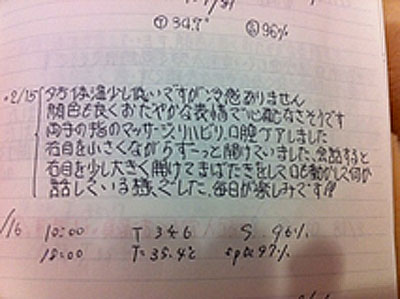 ① 34.7° ⑤ 96%
・2/15 夕方体温少し低いですが冷感ありません
顔色も良くおだやかな表情で心配なさそうです
両手の指のマッサージ、リハビリ、口腔ケアしました
右目を小さくながらずーっと開けていました、会話すると
右目を少し大きく開けてまばたきをして口も動かして何か
話している様子でした、毎日が楽しみです!!
/16 10:00 T 34.6 S 96%
18:00 T= 35.4℃ spo2 97%